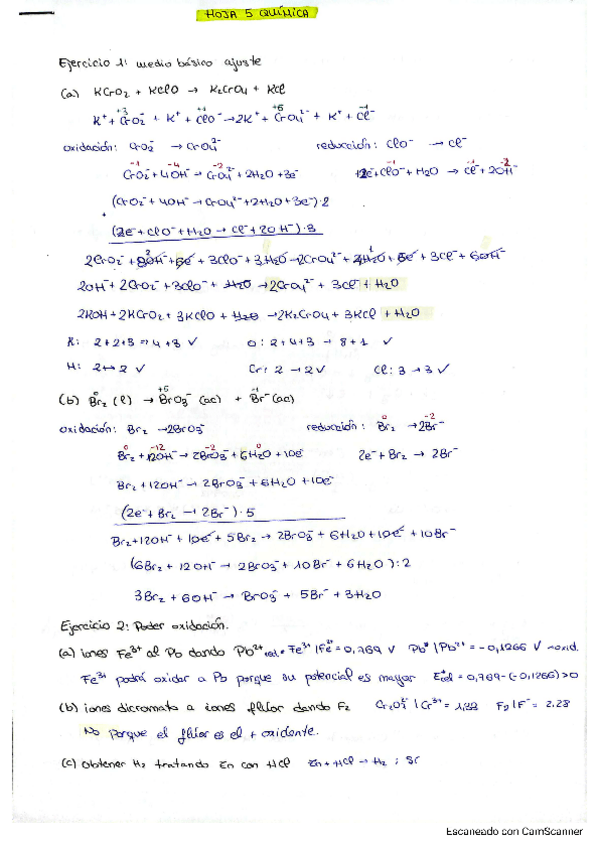 HOJA 5 QUÍMICA
Ejercicio 1: medio básico ajuste
(a) KCrO2 + KClO → K2CrO4 + KCl
K⁺ + CrO2⁻ + K⁺ + ClO⁻ → 2K⁺ + CrO4²⁻ + K⁺ + Cl⁻
oxidación: CrO2⁻ → CrO4²⁻ reducción: ClO⁻ → Cl⁻
CrO2⁻ + 4OH⁻ → CrO4²⁻ + 2H2O + 3e⁻ 2e⁻ + ClO⁻ + H2O → Cl⁻ + 2OH⁻
(CrO2⁻ + 4OH⁻ → CrO4²⁻ + 2H2O + 3e⁻)·2
(2e⁻ + ClO⁻ + H2O → Cl⁻ + 2OH⁻)·3
2CrO2⁻ + 8OH⁻ + 6e⁻ + 3ClO⁻ + 3H2O → 2CrO4²⁻ + 4H2O + 6e⁻ + 3Cl⁻ + 6OH⁻
2OH⁻ + 2CrO2⁻ + 3ClO⁻ + H2O → 2CrO4²⁻ + 3Cl⁻ + H2O
2KOH + 2KCrO2 + 3KClO + H2O → 2K2CrO4 + 3KCl + H2O
K: 2+2+3 => 4+3 ✓ O: 2+4+3 → 8+1 ✓
H: 2 → 2 ✓ Cr: 2 → 2 ✓ Cl: 3 → 3 ✓
(b) Br2 (l) → BrO3⁻ (ac) + Br⁻ (ac)
oxidación: Br2 → 2BrO3⁻ reducción: Br2 → 2Br⁻
Br2 + 12OH⁻ → 2BrO3⁻ + 6H2O + 10e⁻ 2e⁻ + Br2 → 2Br⁻
Br2 + 12OH⁻ → 2BrO3⁻ + 6H2O + 10e⁻
(2e⁻ + Br2 → 2Br⁻)·5
Br2 + 12OH⁻ + 10e⁻ + 5Br2 → 2BrO3⁻ + 6H2O + 10e⁻ + 10Br⁻
(6Br2 + 12OH⁻ → 2BrO3⁻ + 10Br⁻ + 6H2O):2
3Br2 + 6OH⁻ → BrO3⁻ + 5Br⁻ + 3H2O
Ejercicio 2: Poder oxidación.
(a) iones Fe³⁺ al Pb dando Pb²⁺ Fe³⁺|Fe²⁺ = 0,769 V Pb⁰|Pb²⁺ = -0,1266 V → oxid.
Fe³⁺ podrá oxidar a Pb porque su potencial es mayor = 0,769 - (-0,1266) > 0
(b) iones dicromato a iones flúor dando F2 Cr2O7²⁻|Cr³⁺ = 1,33 F2|F⁻ = 2.28
No porque el flúor es el + oxidente.
(c) Obtener H2 tratando Zn con HCl Zn + HCl → H2 ; Sí
Escaneado con CamScanner